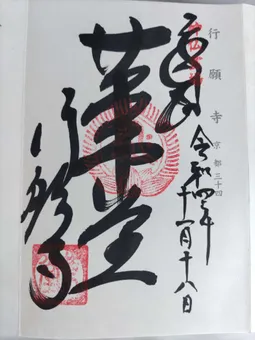 行願寺 京都三十四
奉拝
令和四年十一月十八日
革堂
行願寺